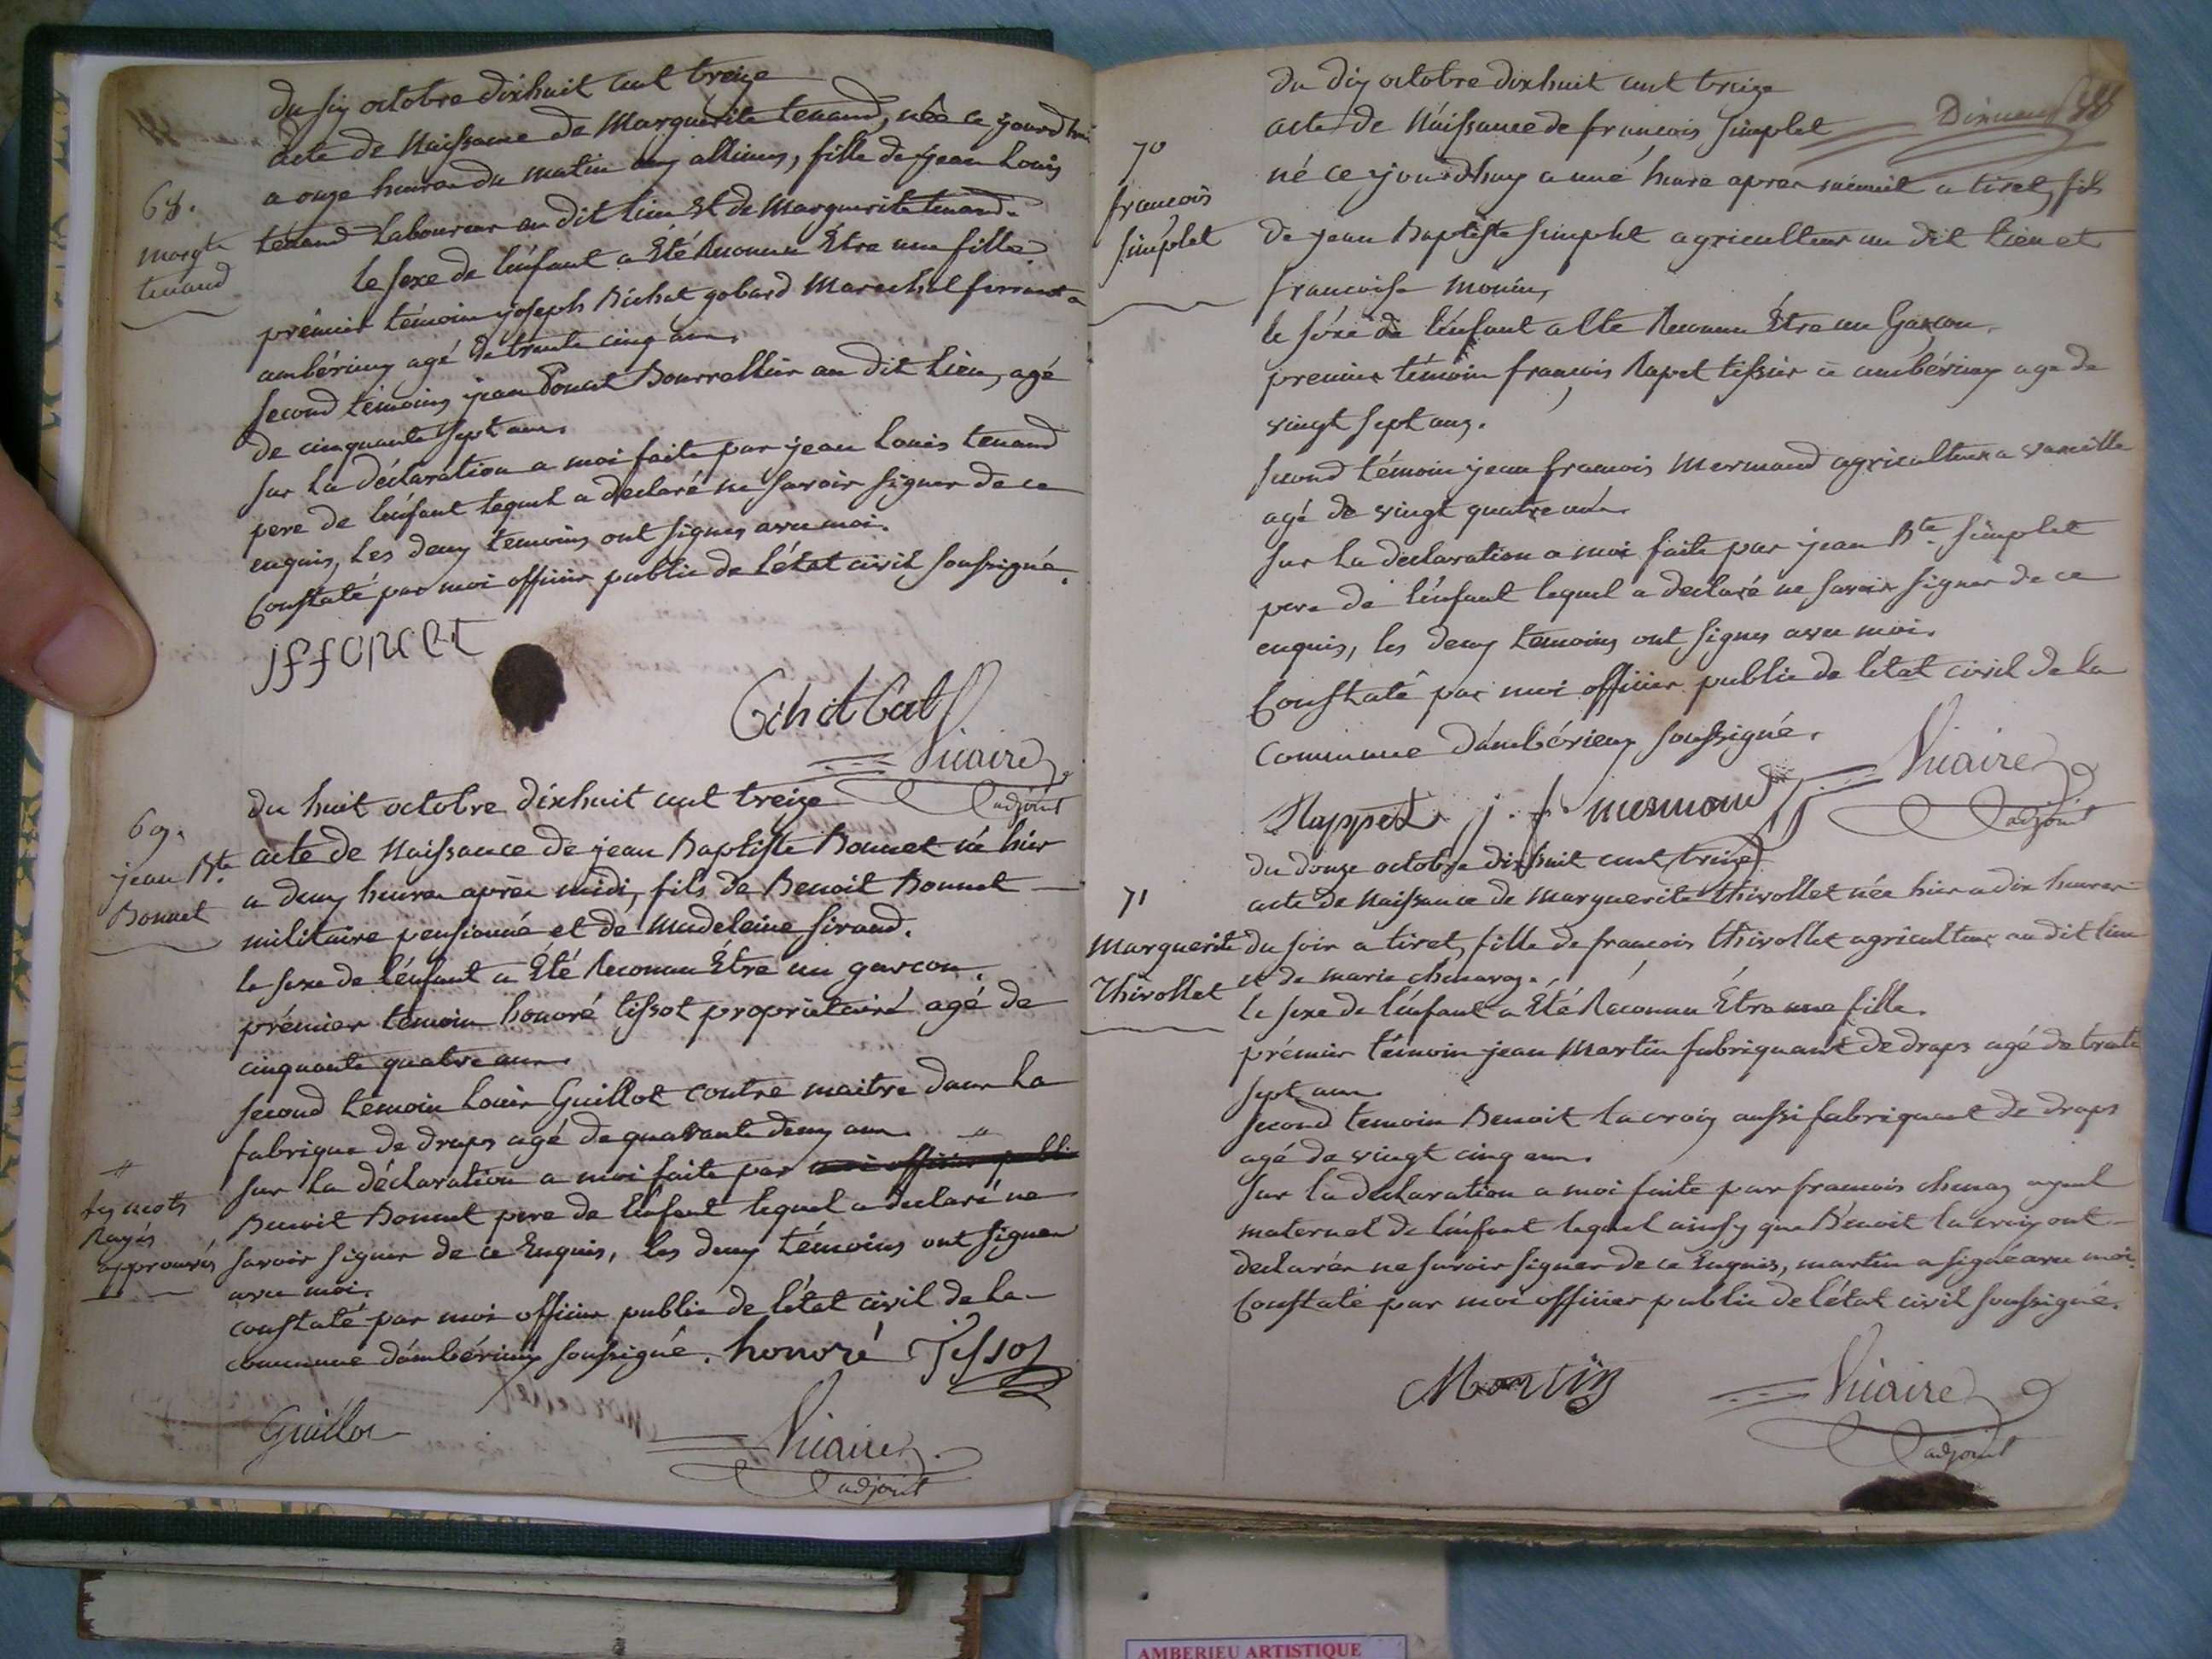 du six octobre dixhuit cent treize
acte de Naissance de Marguerite tenand, née ce jourd'hui
a onze heures du matin aux allimes, fille de jean Louis
68.
Margte
tenand
tenand Laboureur au dit lieu et de Marguerite tenand.
le sexe de l'enfant a Eté Reconnu Etre une fille.
prémier témoin joseph Bichat gobard Marechal ferrant a
ambérieux agé de trente cinq ans.
second témoins jean foncet Bourrellier au dit lieu, agé
de cinquante sept ans.
sur la déclaration a moi faite par jean Louis tenand
pere de l'enfant lequel a declaré ne savoir signer de ce
enquis, les deux temoins ont signes avec moi.
Constaté par moi officier public de l'état civil soussigné.
jffoncet
Vicaire
adjoint
du huit octobre dixhuit cent treize
69.
jean Bte
Bonnet
acte de Naissance de jean Baptiste Bonnet né hier
a deux heures après midi, fils de Benoit Bonnet
militaire pensionné et de Madeleine Siraud.
le sexe de l'enfant a Eté Reconnu Etre un garcon.
prémier témoin honoré tissot propriétairé agé de
cinquante quatre ans.
second témoin Louis Guillot contre maitre dans la
fabrique de draps agé de quarante deux ans.
sur la déclaration a moi faite par moi officier public
mots
Rayés
approuvés
Benoit Bonnet pere de l'enfant lequel a declaré ne
savoir signer de ce Enquis, les deux témoins ont signes
avec moi.
constaté par moi officier public de l'état civil de la
commune d'ambérieux soussigné. honoré Tissot
Guillot
Vicaire
adjoint
du dix octobre dixhuit cent treize
acte de Naissance de francois simplet
70
francois
simplet
né ce jourdhuy a une heure apres minuit a tiret, fils
de jean Baptiste simplet agriculteur au dit lieu et
francoise monin,
le séxe de l'enfant a Eté Reconnu Etre un Garcon.
premier témoin francois Rapet tissier a ambérieux age de
vingt sept ans.
second témoin jean francois Mermand agriculteur a vareille
agé de vingt quatre ans.
sur la declaration a moi faite par jean Bte simplet
pere de l'enfant lequel a declaré ne savoir signer de ce
enquis, les deux temoins ont signes avec moi.
Constaté par moi officier public de l'état civil de la
commune d'ambérieux soussigné.
Rappet j. f mermand Vicaire
adjoint
du douze octobre dixhuit cent treize
71
Marguerite
Thivollet
acte de Naissance de Marguerite thivollet née hier a dix heures
du soir a tiret, fille de francois thivollet agriculteur au dit lieu
et de marie chenavaz.
le sexe de l'enfant a Eté Reconnu Etre une fille.
prémier témoin jean Martin fabriquant de draps agé de trente
sept ans.
second temoin Benoit Lacroix aussi fabriquant de draps
agé de vingt cinq ans.
sur la declaration a moi faite par francois ayeul
maternel de l'enfant lequel ainsy que Benoit lacroix ont
declarés ne savoir signer de ce Enquis, martin a signé avec moi.
Constaté par moi officier public de l'état civil soussigné.
Martin
Vicaire
adjoint
AMBERIEU ARTISTIQUE